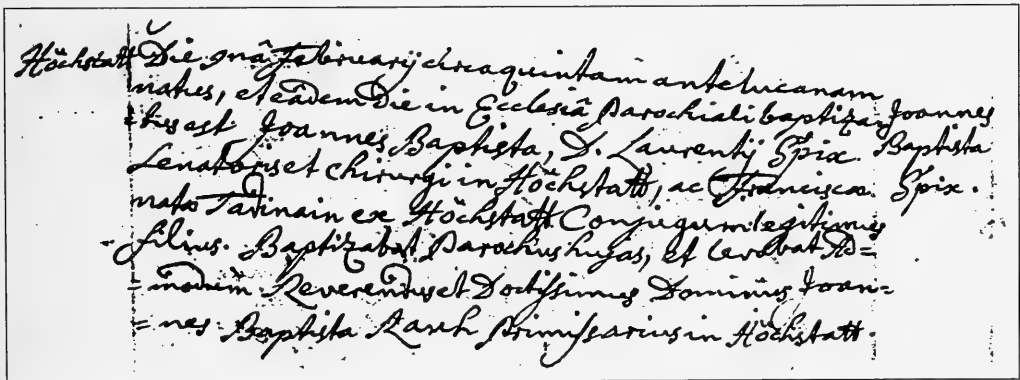 Höchstatt Die 9nâ Februarij circa quintam antelucanam
natus, et eâdem Die in Ecclesiâ Parochiali baptiza= Joannes
tus est Joannes Baptista, D. Laurentij Spix Baptista
Senatoris et Chirurgi in Höchstatt, ac Franciscae Spix.
natae in ex Höchstatt Conjugum legitimus
filius. Baptizabat Parochus hujas, et levabat Ad=
=modum Reverendus et Doctissimus Dominus Joan=
=nes Baptista Primissarius in Höchstatt.